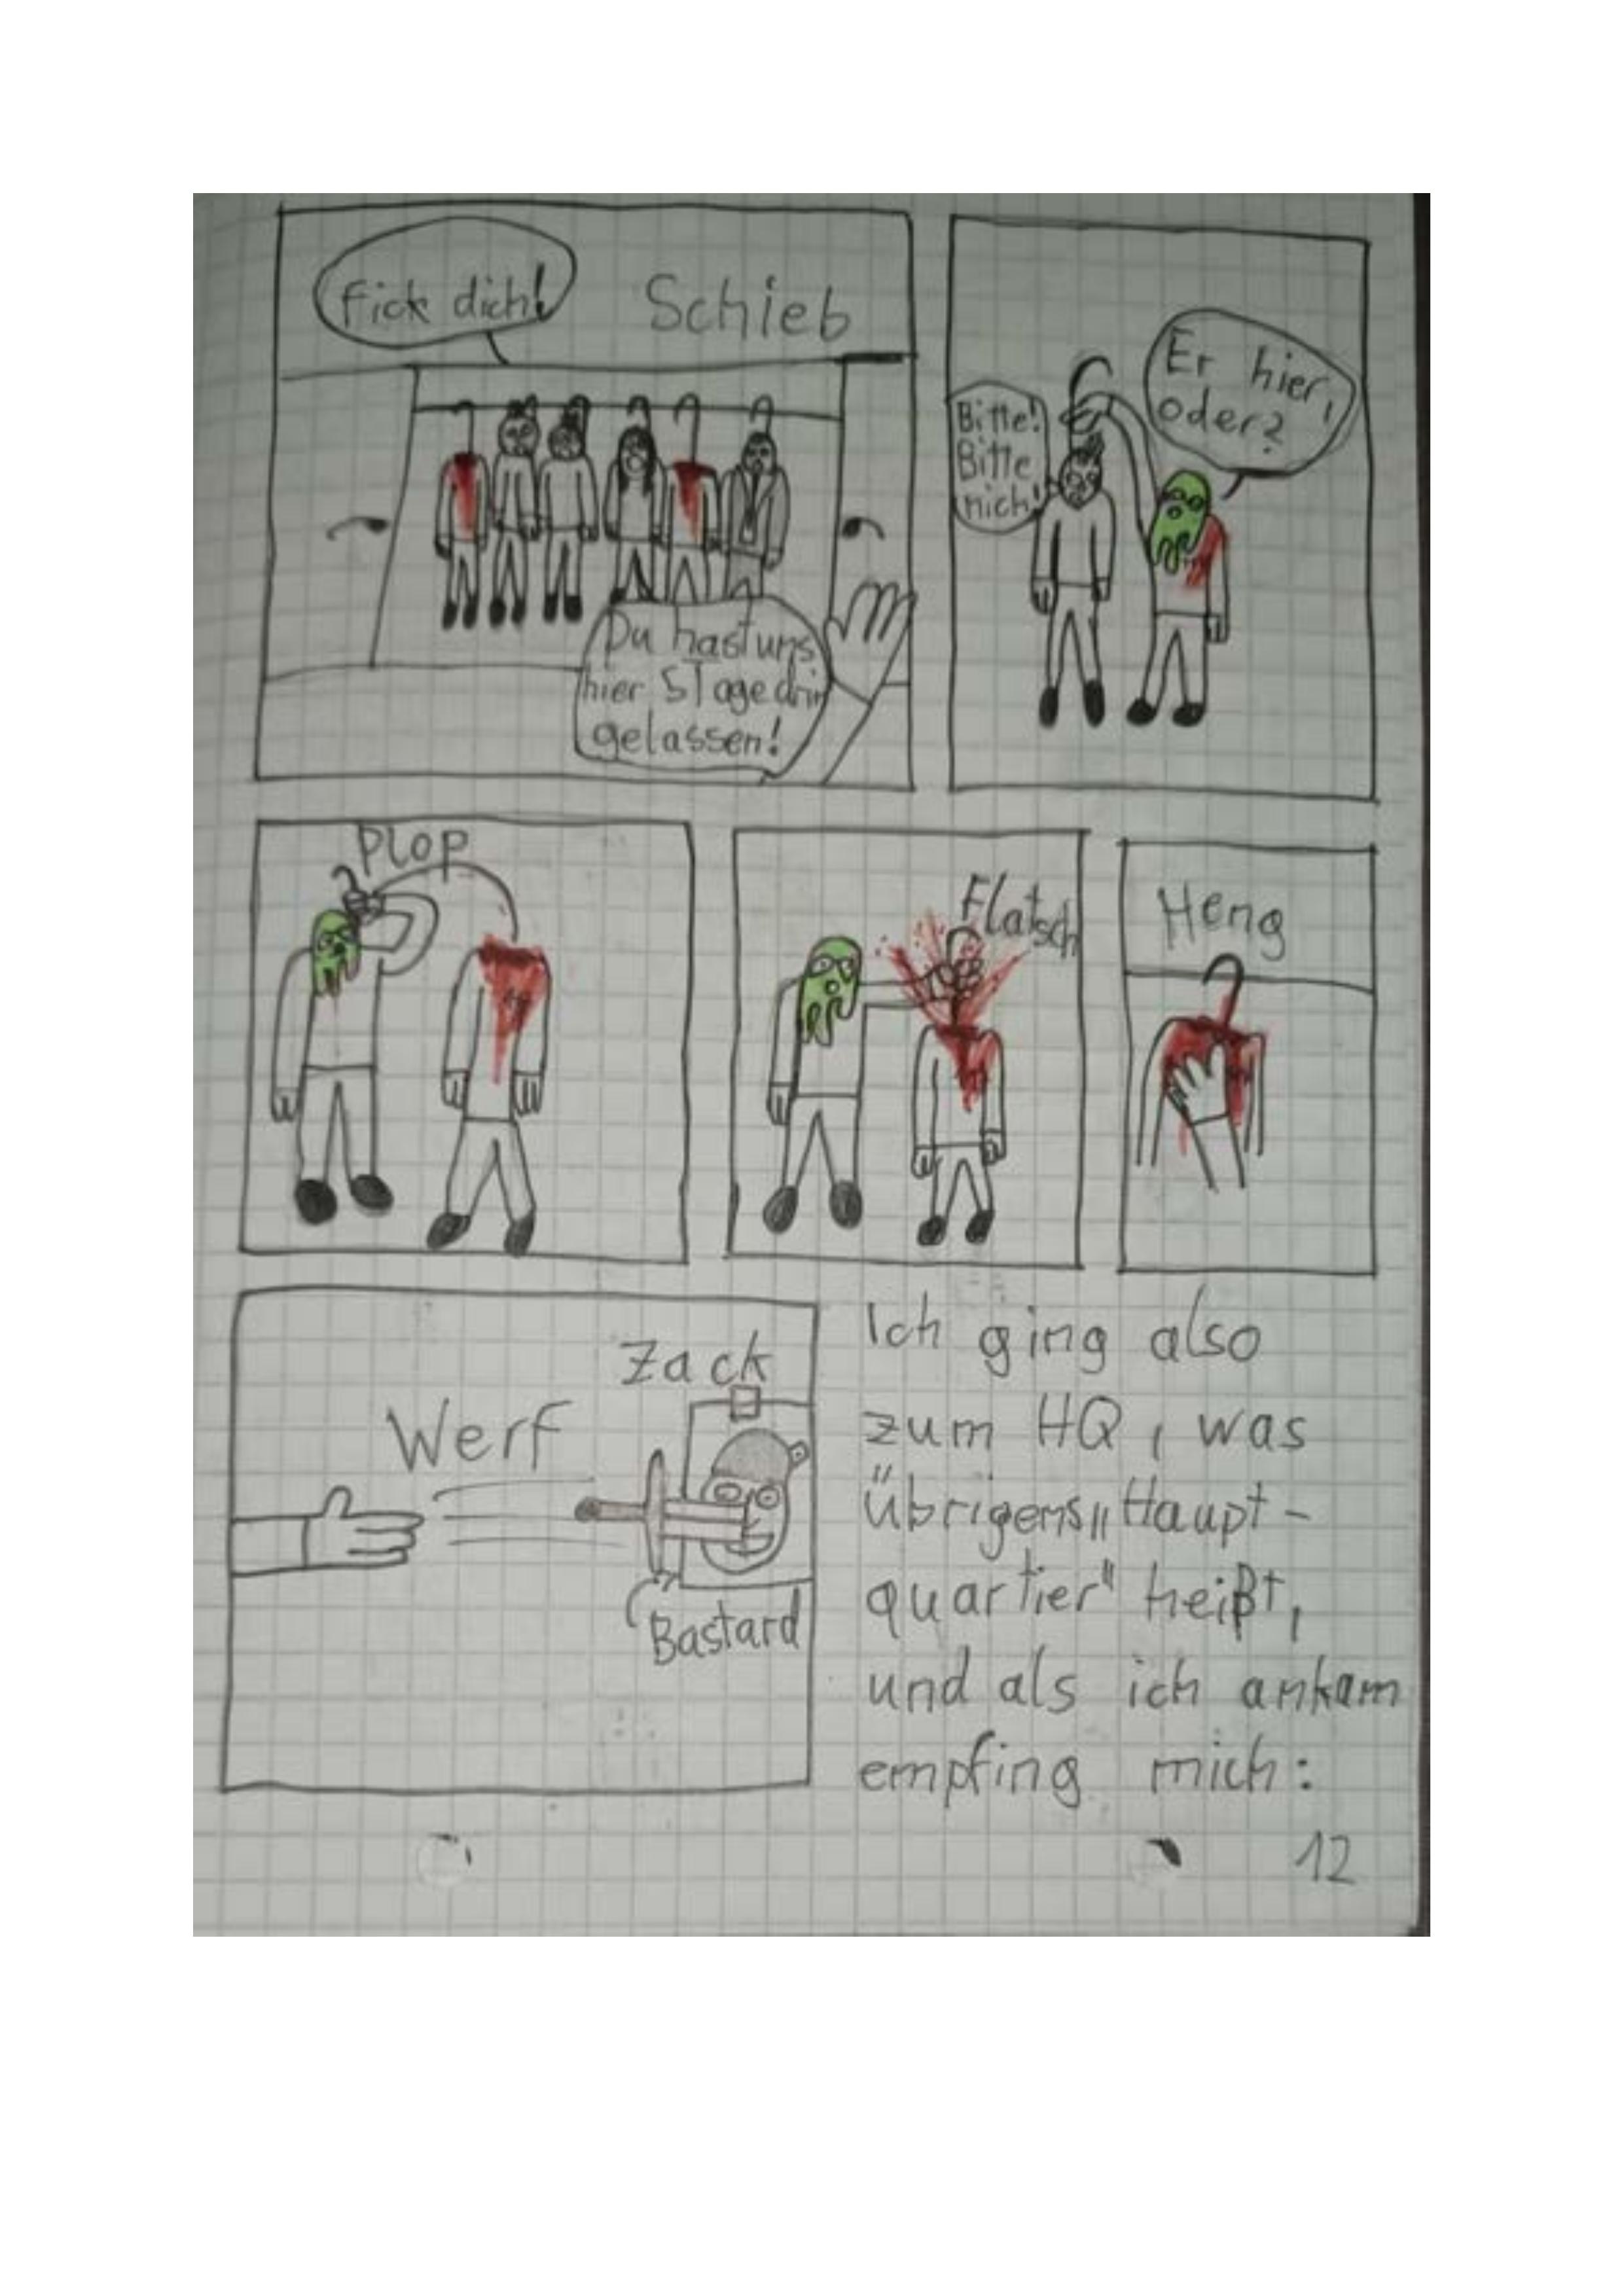 Fick dich!
Schieb
Du hast uns
hier 5 Tage drin
gelassen!
Bitte!
Bitte
nich!
Er hier,
oder?
Plop
Flatsch
Heng
Zack
Werf
Bastard
Ich ging also
zum HQ, was
übrigens „Haupt-
quartier“ heißt,
und als ich ankam
empfing mich:
12